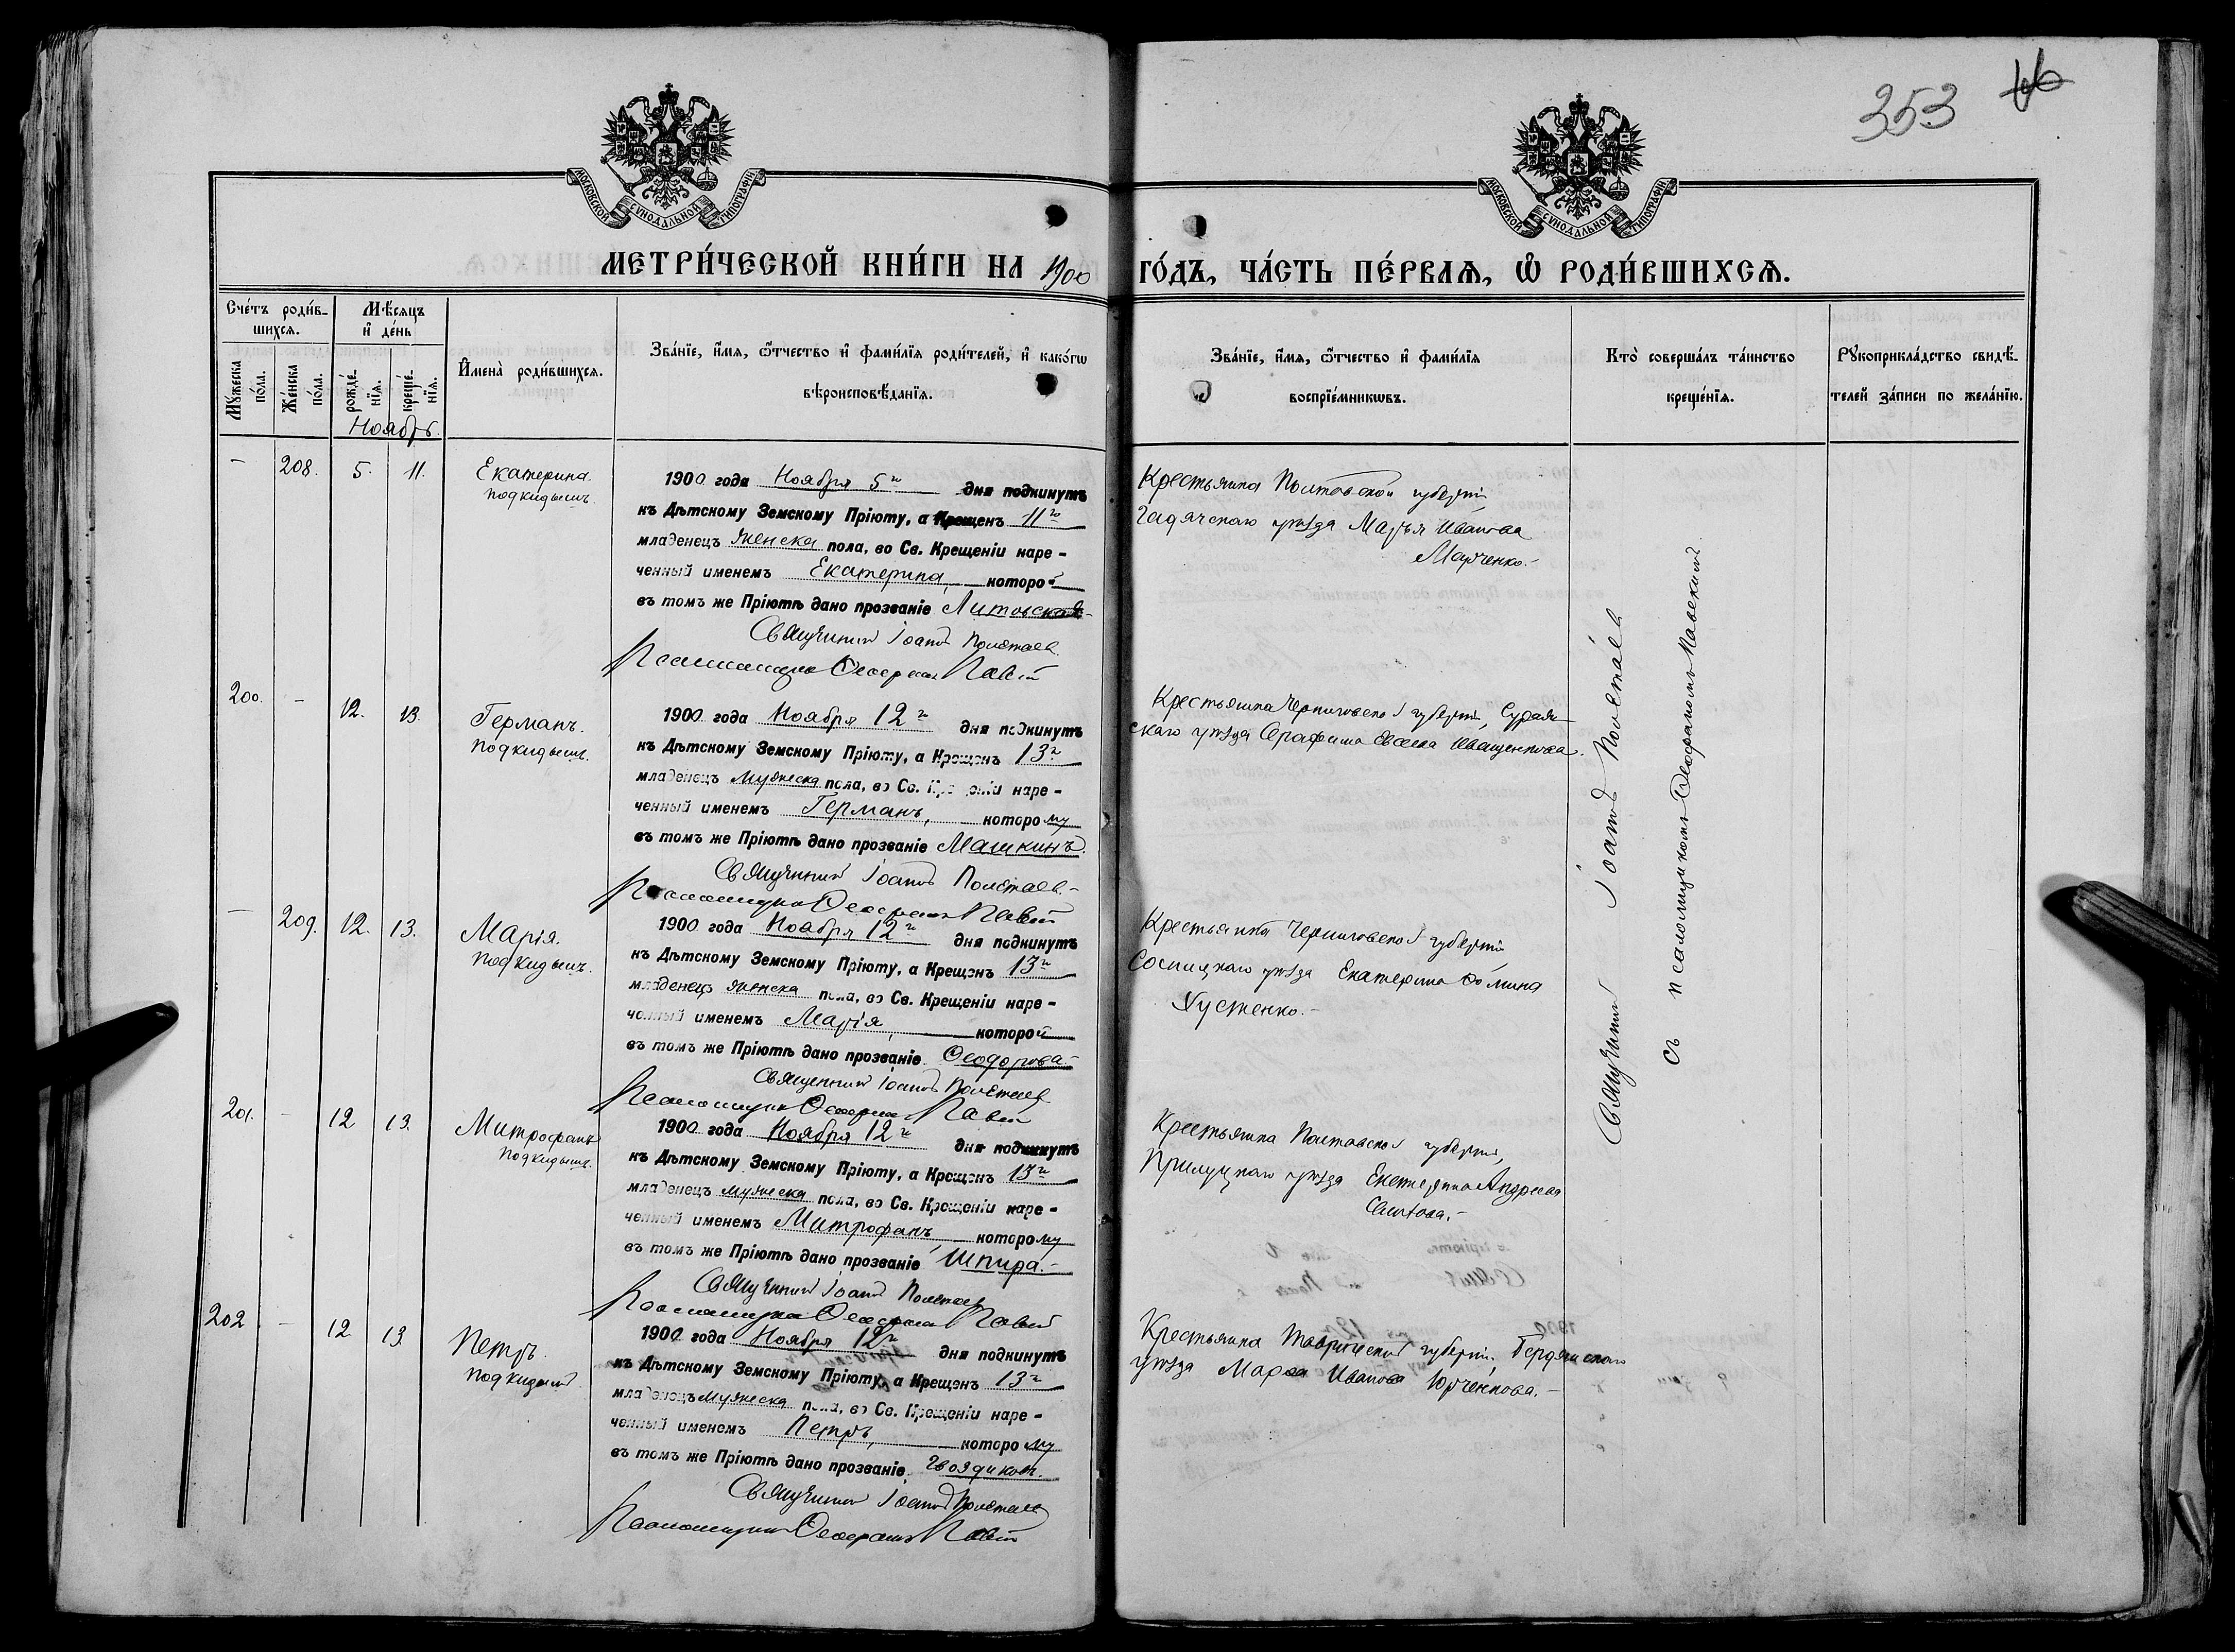 353
МОСКОВСКОЙ СУНОДАЛЬНОЙ ТИПОГРАФІИ
МОСКОВСКОЙ СУНОДАЛЬНОЙ ТИПОГРАФІИ
МЕТРИ́ЧЕСКОЙ КНИ́ГИ НА 1900 ГО́ДЪ, ЧА́СТЬ ПЕ́РВАѦ, Ѽ РОДИ́ВШИХСѦ.
Сче́тъ роди́в-
шихсѧ.
Мꙋ́жеска
по́ла.
Же́нска
по́ла.
Мѣ́сѧцъ
и҆ де́нь
рожде́-
нїѧ.
креще́-
нїѧ.
Ноябрь.
И҆мена̀ роди́вшихсѧ.
Зва́нїе, и҆́мѧ, ѻ҆́тчество и҆ фами́лїѧ роди́телей, и҆ како́гѡ
вѣроисповѣ́данїѧ.
Зва́нїе, и҆́мѧ, ѻ҆́тчество и҆ фами́лїѧ
воспрїе́мникѡвъ.
Кто̀ соверша́лъ та́инство
креще́нїѧ.
Рꙋкоприкла́дство свидѣ́-
телей за́писи по жела́нїю.
— 208. 5. 11.
Екатерина.
подкидышъ.
1900 года Ноября 5го дня подкинутъ
къ Дѣтскому Земскому Пріюту, а Крещенъ 11го
младенецъ женска пола, во Св. Крещеніи наре-
ченный именемъ Екатерина, которой
въ томъ же Пріютѣ дано прозваніе Литовская
Священникъ Іоаннъ Полетаев.
Псаломщикъ Ѳеофанъ
Крестьянка Полтавской губерніи,
Гадячскаго уѣзда Марья Иванова
Марченко.-
200. - 12. 13.
Германъ.
подкидышъ.
1900 года Ноября 12го дня подкинутъ
къ Дѣтскому Земскому Пріюту, а Крещенъ 13го
младенецъ мужеска пола, во Св. Крещеніи наре-
ченный именемъ Германъ, которому
въ томъ же Пріютѣ дано прозваніе Машкинъ.
Священникъ Іоаннъ Полетаев.-
Псаломщикъ Ѳеофанъ
Крестьянка Черниговской губерніи, Сураж-
скаго уѣзда Серафима Евсеева Иващенкова.
— 209. 12. 13.
Марія.
подкидышъ.
1900 года Ноября 12го дня подкинутъ
къ Дѣтскому Земскому Пріюту, а Крещенъ 13го
младенецъ женска пола, во Св. Крещеніи наре-
ченный именемъ Марія, которой
въ томъ же Пріютѣ дано прозваніе Ѳеодорова.-
Священникъ Іоаннъ Полетаев
Псаломщикъ Ѳеофанъ
Крестьянка Черниговской губерніи,
Сосницкаго уѣзда Екатерина Ѳомина
Хустенко.-
201. - 12 13.
Митрофанъ
подкидышъ.
1900 года Ноября 12го дня подкинутъ
къ Дѣтскому Земскому Пріюту, а Крещенъ 13го
младенецъ мужеска пола, во Св. Крещеніи наре-
ченный именемъ Митрофанъ, которому
въ томъ же Пріютѣ дано прозваніе Шпира.-
Священникъ Іоаннъ Полетаев
Псаломщикъ Ѳеофанъ
Крестьянка Полтавской губерніи,
Прилуцкаго уѣзда Екатерина Андреева
202. - 12 13.
Петръ.
подкидышъ.
1900 года Ноября 12го дня подкинутъ
къ Дѣтскому Земскому Пріюту, а Крещенъ 13го
младенецъ мужеска пола, во Св. Крещеніи наре-
ченный именемъ Петръ, которому
въ томъ же Пріютѣ дано прозваніе Гвоздиковъ.
Священникъ Іоаннъ Полетаев
Псаломщикъ Ѳеофанъ
Крестьянка Таврической губерніи, Бердянскаго
уѣзда Марѳа Иванова Юрченкова.-
Священникъ Іоаннъ Полетаев
съ псаломщикомъ Ѳеофаномъ Павскимъ.